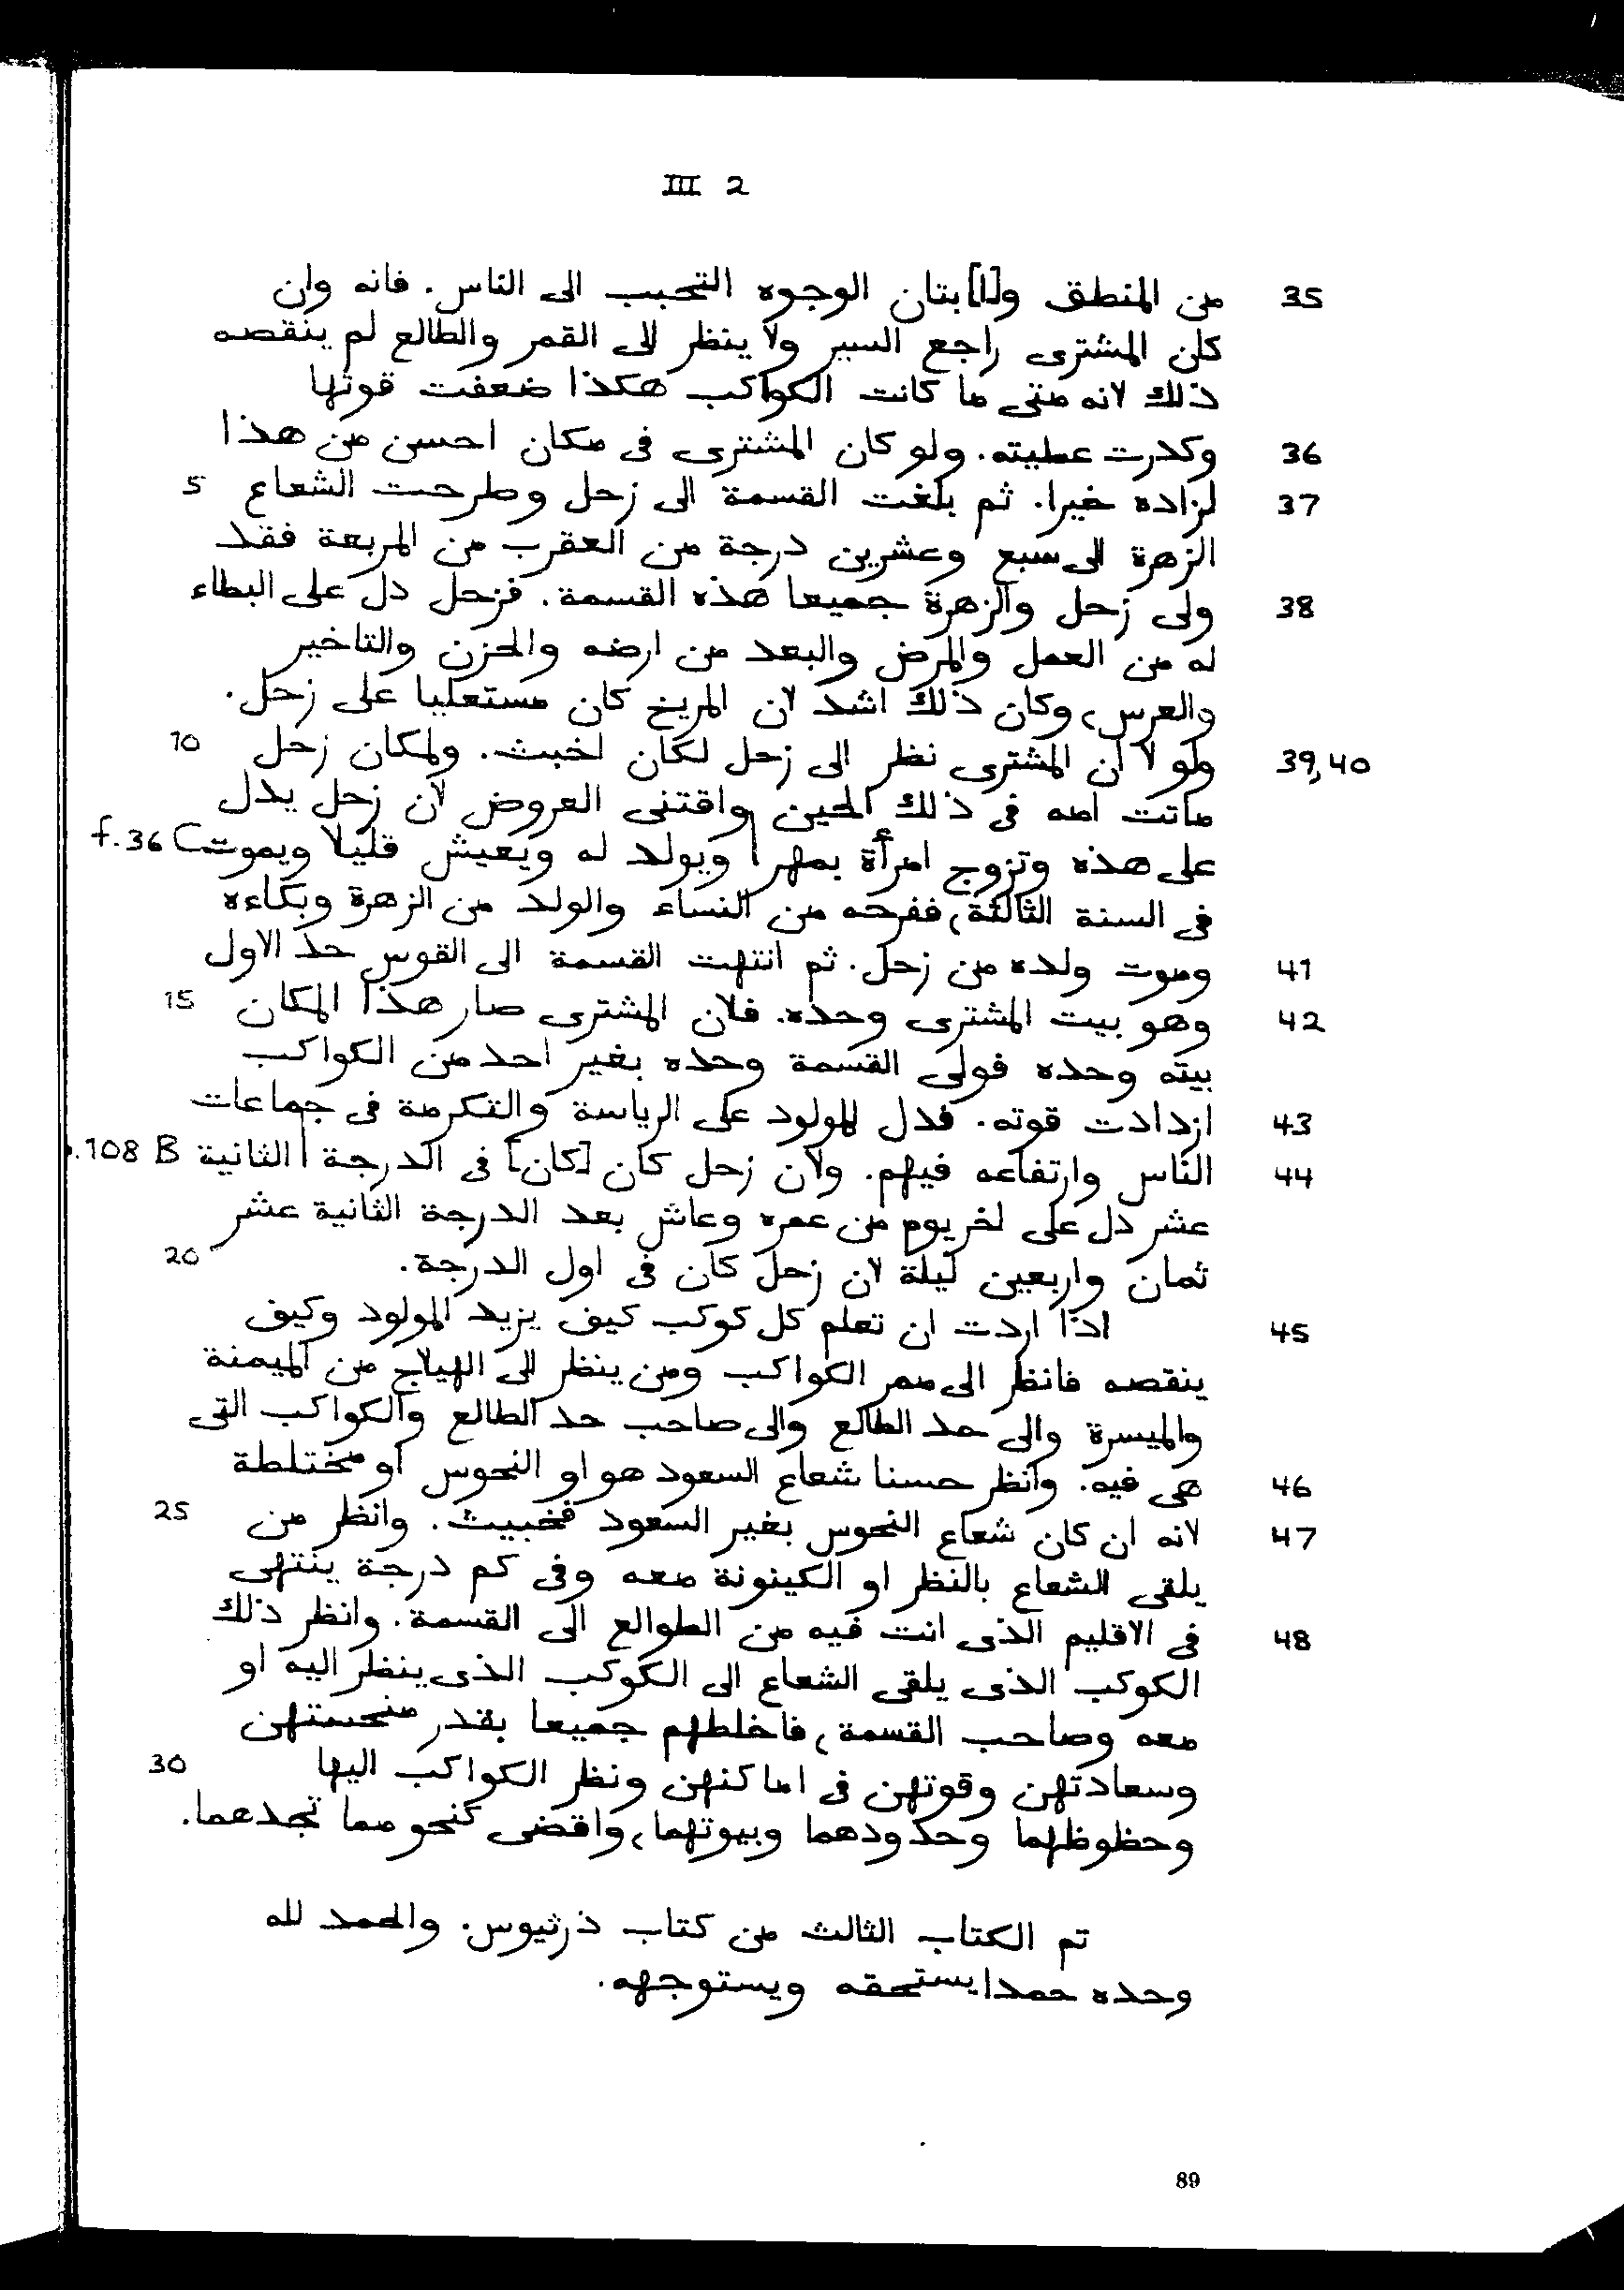 III 2
35 من المنطق و[ا]بتان الوجوه التحبب الى الناس. فانه وان
كان المشترى راجع السير ولا ينظر الى القمر والطالع لم ينقصه
ذلك لانه متى ما كانت الكواكب هكذا ضعفت قوتها
36 وكدرت عطيته. ولو كان المشترى فى مكان احسن من هذا
37 لزاده خيرا. ثم بلغت القسمة الى زحل وطرحت الشعاع 5
الزهرة الى سبع وعشرين درجة من العقرب من المربعة فقد
38 ولى زحل والزهرة جميعا هذه القسمة. فزحل دل على البطاء
له من العمل والمرض والبعد من ارضه والحزن والتاخير
والعرس، وكان ذلك اشد لان المريخ كان مستعليا على زحل.
39,40 ولو لا ان المشترى نظر الى زحل لكان اخبث. ولمكان زحل 10
ماتت امه فى ذلك الحين واقتنى العروض لان زحل يدل
على هذه وتزوج امرأة بمهر| ويولد له ويعيش قليلا ويموت f.36 C
فى السنة الثالثة، ففرحه من النساء والولد من الزهرة وبكاءه
41 وموت ولده من زحل. ثم انتهت القسمة الى القوس حد الاول
42 وهو بيت المشترى وحده. فلان المشترى صار هذا المكان 15
بيته وحده فولى القسمة وحده بغير احد من الكواكب
43 ازدادت قوته. فدل للمولود على الرياسة والتكرمة فى جماعات
44 الناس وارتفاعه فيهم. ولان زحل كان [كان] فى الدرجة | الثانية .108 B
عشر دل على اخر يوم من عمره وعاش بعد الدرجة الثانية عشر
ثمان واربعين ليلة لان زحل كان فى اول الدرجة. 20
45 اذا اردت ان تعلم كل كوكب كيف يزيد المولود وكيف
ينقصه فانظر الى ممر الكواكب ومن ينظر الى الهيلاج من الميمنة
والميسرة والى حد الطالع والى صاحب حد الطالع والكواكب التى
46 هى فيه. وانظر حسنا شعاع السعود هو او النحوس او مختلطة
47 لانه ان كان شعاع النحوس بغير السعود فخبيث. وانظر من 25
يلقى الشعاع بالنظر او الكينونة معه وفى كم درجة ينتهى
48 فى الاقليم الذى انت فيه من الطوالع الى القسمة. وانظر ذلك
الكوكب الذى يلقى الشعاع الى الكوكب الذى ينظر اليه او
معه وصاحب القسمة، فاخلطهم جميعا بقدر منحستهن
وسعادتهن وقوتهن فى اماكنهن ونظر الكواكب اليها 30
وحظوظهما وحدودهما وبيوتهما، واقضى كنحو مما تجدهما.
تم الكتاب الثالث من كتاب ذرثيوس. والحمد لله
وحده حمدا يستحقه ويستوجهه.
89